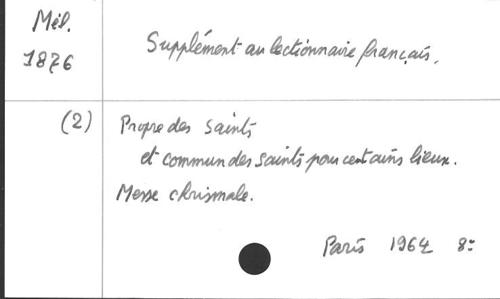 Mél.
1876
Supplément au lectionnaire français.
(2)
Propre des Saints
et commun des saints pour certains lieux.
Messe chrismale.
Paris 1964 8º